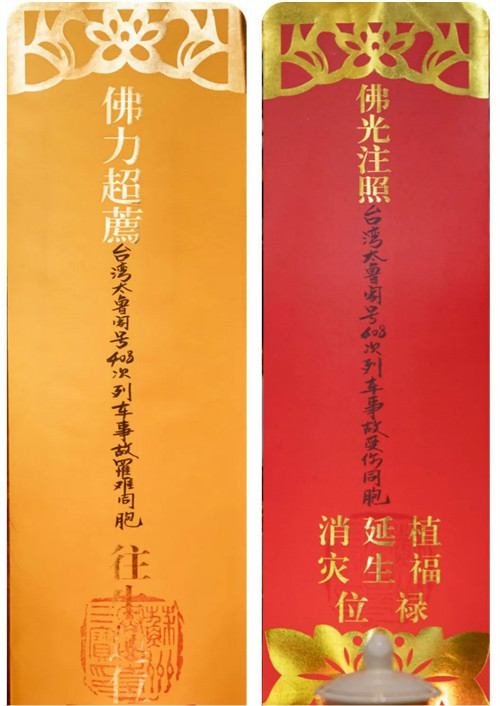 佛力超薦
台湾太鲁阁号408次列车事故罹难同胞
往生位
佛光注照
台湾太鲁阁号408次列车事故受伤同胞
植福
延生
消灾
禄位